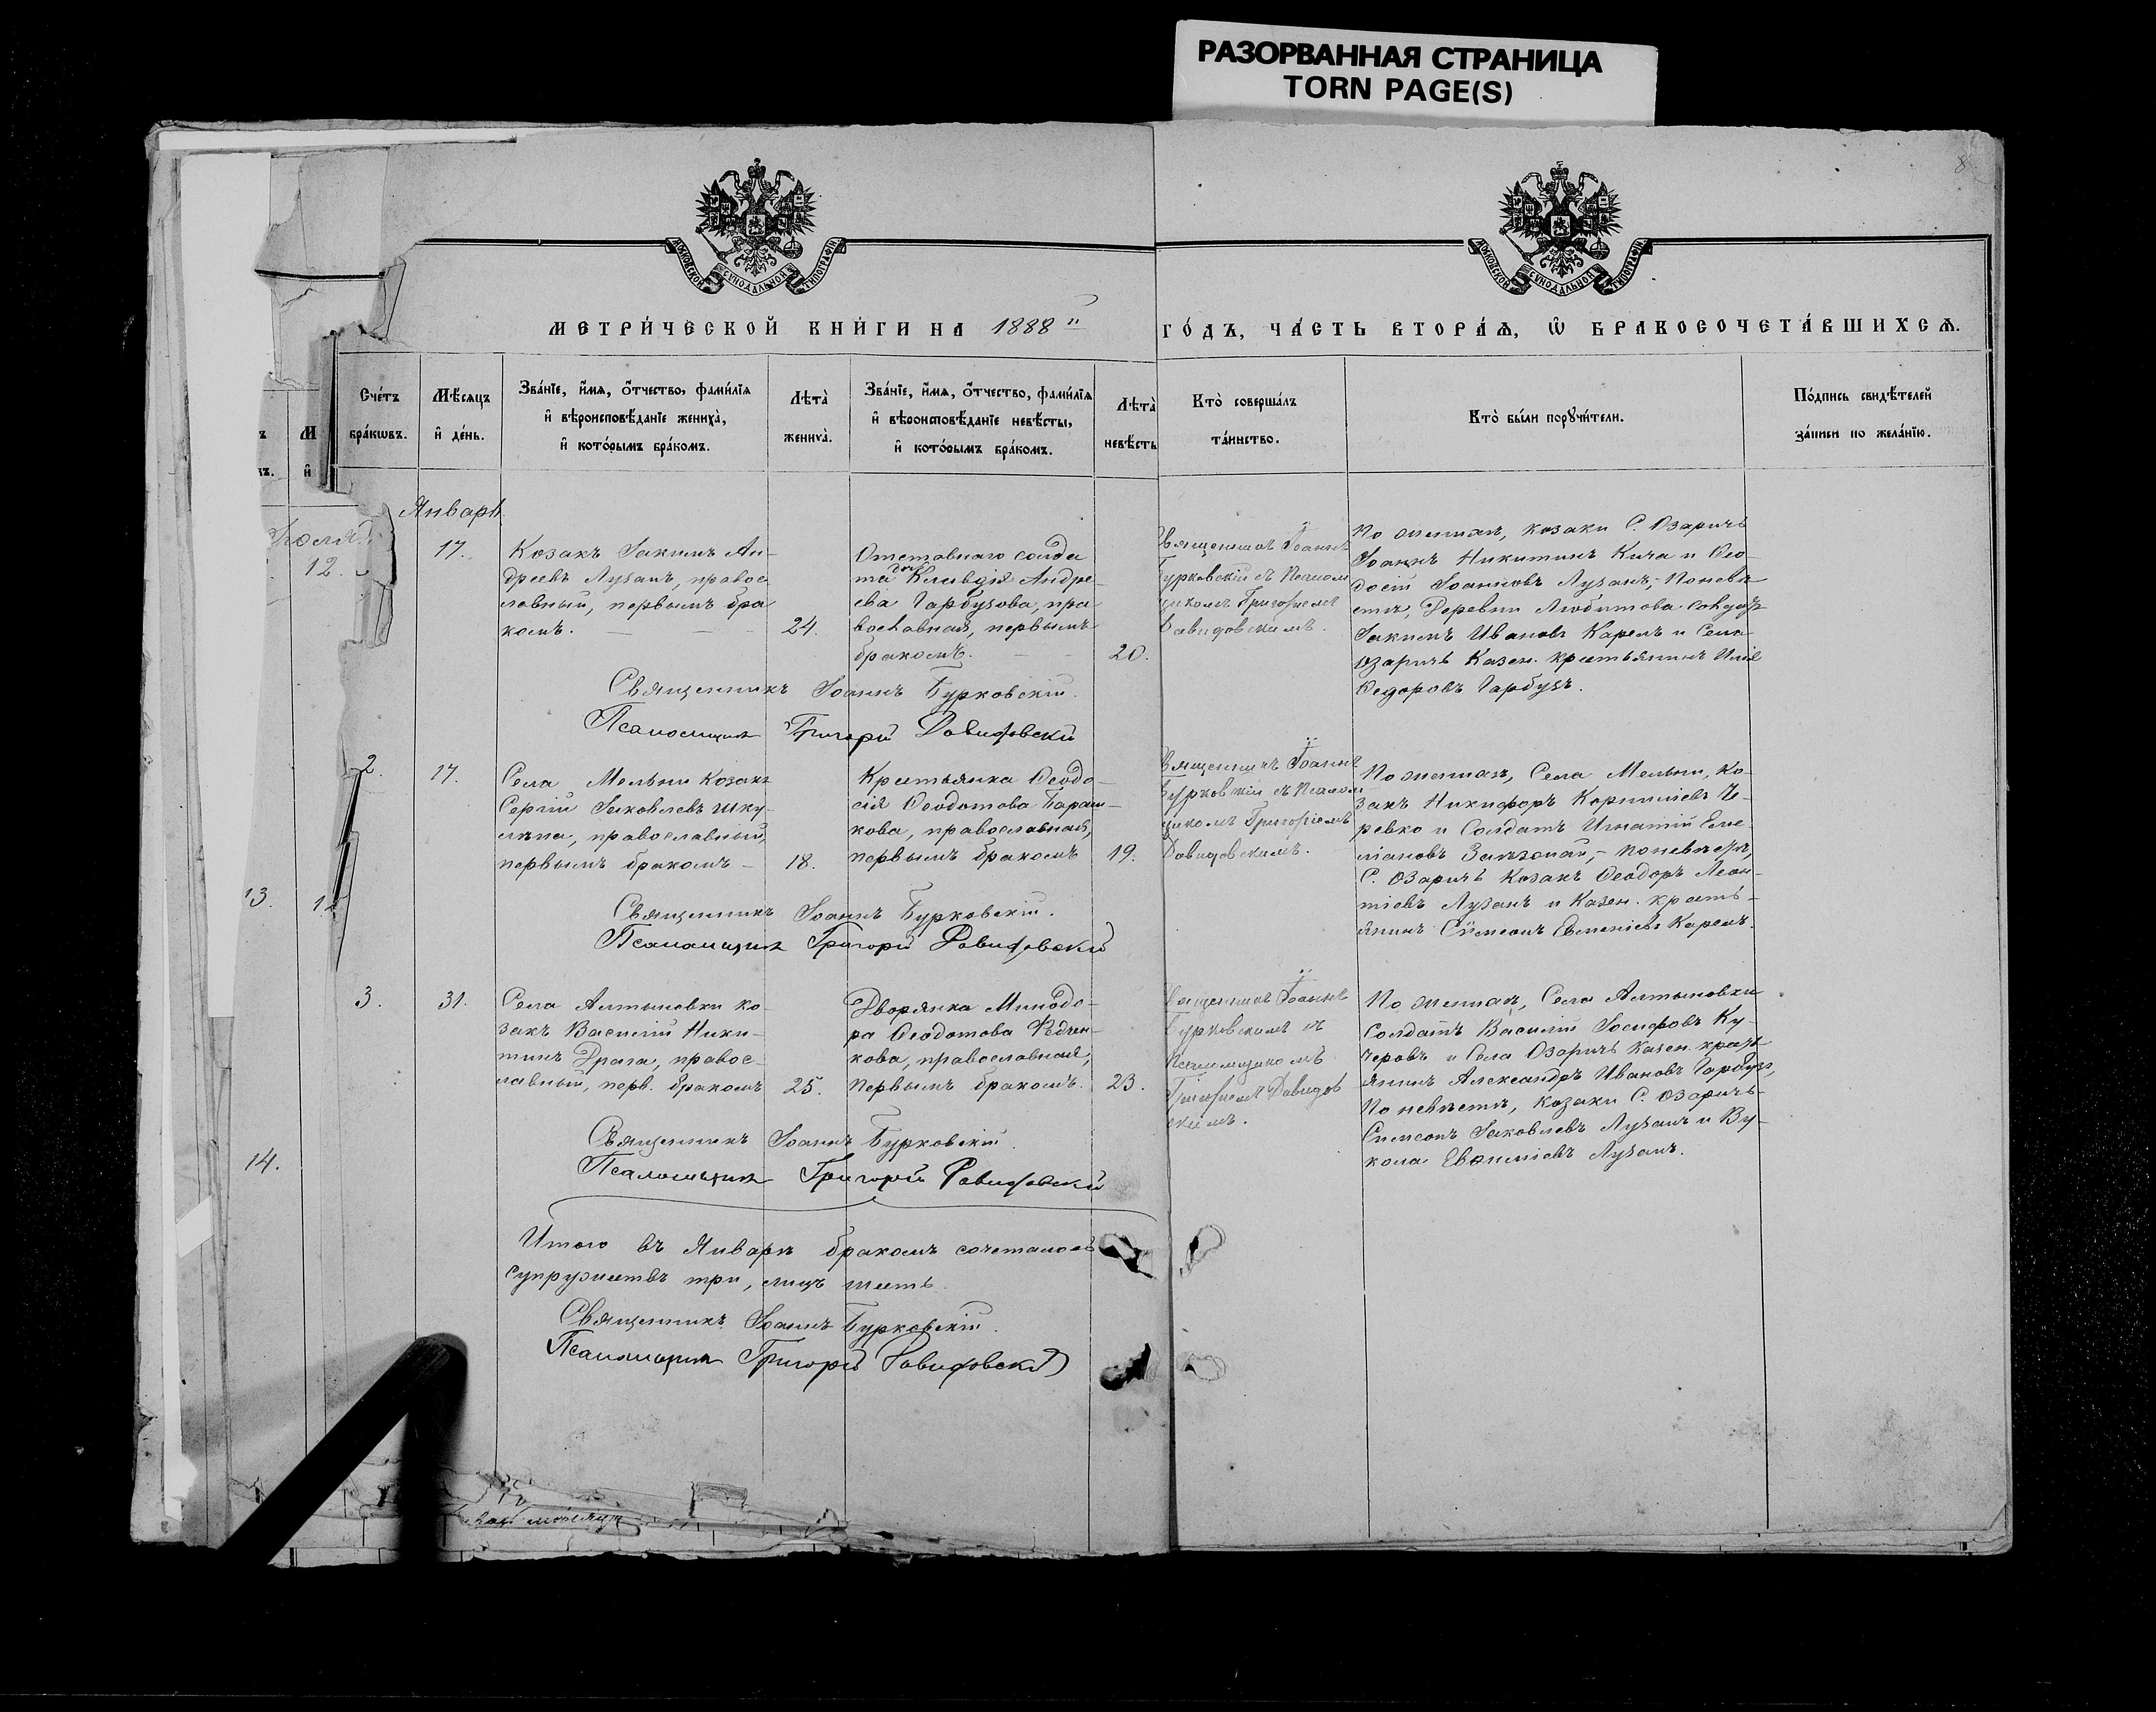 РАЗОРВАННАЯ СТРАНИЦА
TORN PAGE(S)
8
МОСКОВСКОЙ СѴНОДАЛЬНОЙ ТИПОГРАФІИ
МОСКОВСКОЙ СѴНОДАЛЬНОЙ ТИПОГРАФІИ
МЕТРИ́ЧЕСКОЙ КНИ́ГИ НА 1888й ГО́ДЪ, ЧА́СТЬ ВТОРА́Ѧ, Ѡ҆ БРАКОСОЧЕТА́ВШИХСѦ.
Сче́тъ
бра́кѡвъ.
Мѣ́сяцъ
и҆ де́нь.
Зва́нїе, и҆́мѧ, ѻ҆́тчество, фами́лїѧ
и҆ вѣроисповѣ́данїе жениха̀,
и҆ кото́рымъ бра́комъ.
Лѣта̀
жениха̀.
Зва́нїе, и҆́мѧ, ѻ҆́тчество, фами́лїѧ
и҆ вѣроисповѣ́данїе невѣ́сты,
и҆ кото́рымъ бра́комъ.
Лѣта̀
невѣ́сты
Кто̀ соверша́лъ
та́инство.
Кто̀ бы́ли порꙋчи́тели.
По́дпись свидѣ́телей
за́писи по жела́нїю.
Январь
12.
17.
Козакъ Іакимъ Ан-
дреевъ Лузанъ, правос
лавный, первымъ бра
комъ.
24.
Отставнаго солда
та дочь Клавдія Андре-
ева Гарбузова, пра
вославная, первымъ
бракомъ.
20.
Священникъ Іоаннъ
Бурковскій съ Псалом
щикомъ Григоріемъ
Давидовскимъ.
По женихѣ, козаки С. Озаричъ
Іоаннъ Никитинъ Кича и Ѳео-
досій Іоанновъ Лузанъ,- По невѣ
стѣ, Деревни Любитова солдатъ
Іакимъ Ивановъ Карета и Села
Озаричъ Казен. крестьянинъ Илія
Ѳедоровъ Гарбузъ.
Священникъ Іоаннъ Бурковскій.
Псаломщикъ Григорій Давидовскій
2.
17.
Села Мельни Козакъ
Сергій Іаковлевъ Шку-
православный,
первымъ бракомъ -
18.
Крестьянка Ѳеодо-
сія Ѳеодотова Бараш-
кова, православная,
первымъ бракомъ
19.
Священникъ Іоаннъ
Бурковскій съ Псалом
щикомъ Григоріемъ
Давидовскимъ.
По женихѣ, Села Мельни, Ко-
закъ Никифоръ Корниліевъ Че-
ревко и Солдатъ Игнатій Еме-
ліановъ - по невѣстѣ,
С. Озаричъ Козакъ Ѳеодоръ Леон-
тіевъ Лузанъ и Казен. кресть-
янинъ Сѵмеонъ Евменіевъ Карета.
13.
Священникъ Іоаннъ Бурковскій.
Псаломщикъ Григорій Давидовскій
3.
31.
Села Алтыновки ко-
закъ Василій Ники-
тинъ Драга, правос-
лавный, перв. бракомъ
25.
Дворянка Минодо-
ра Ѳеодотова Федчен-
кова, православная,
первымъ бракомъ.
23.
Священникъ Іоаннъ
Бурковскій съ
Псаломщикомъ
Григоріемъ Давидов
скимъ.
По женихѣ, Села Алтыновки
Солдатъ Василій Іосифовъ Ку-
черовъ и Села Озаричъ Казен. кресть
янинъ Александръ Ивановъ Гарбузъ,
По невѣстѣ, козаки С. Озаричъ
Симеонъ Іаковлевъ Лузанъ и Ву-
кола Евѳиміевъ Лузанъ.
14.
Священникъ Іоаннъ Бурковскій.
Псаломщикъ Григорій Давидовскій
Итого въ Январѣ бракомъ сочеталось
супружествъ три, лицъ шесть.
Священникъ Іоаннъ Бурковскій.
Псаломщикъ Григорій Давидовскій